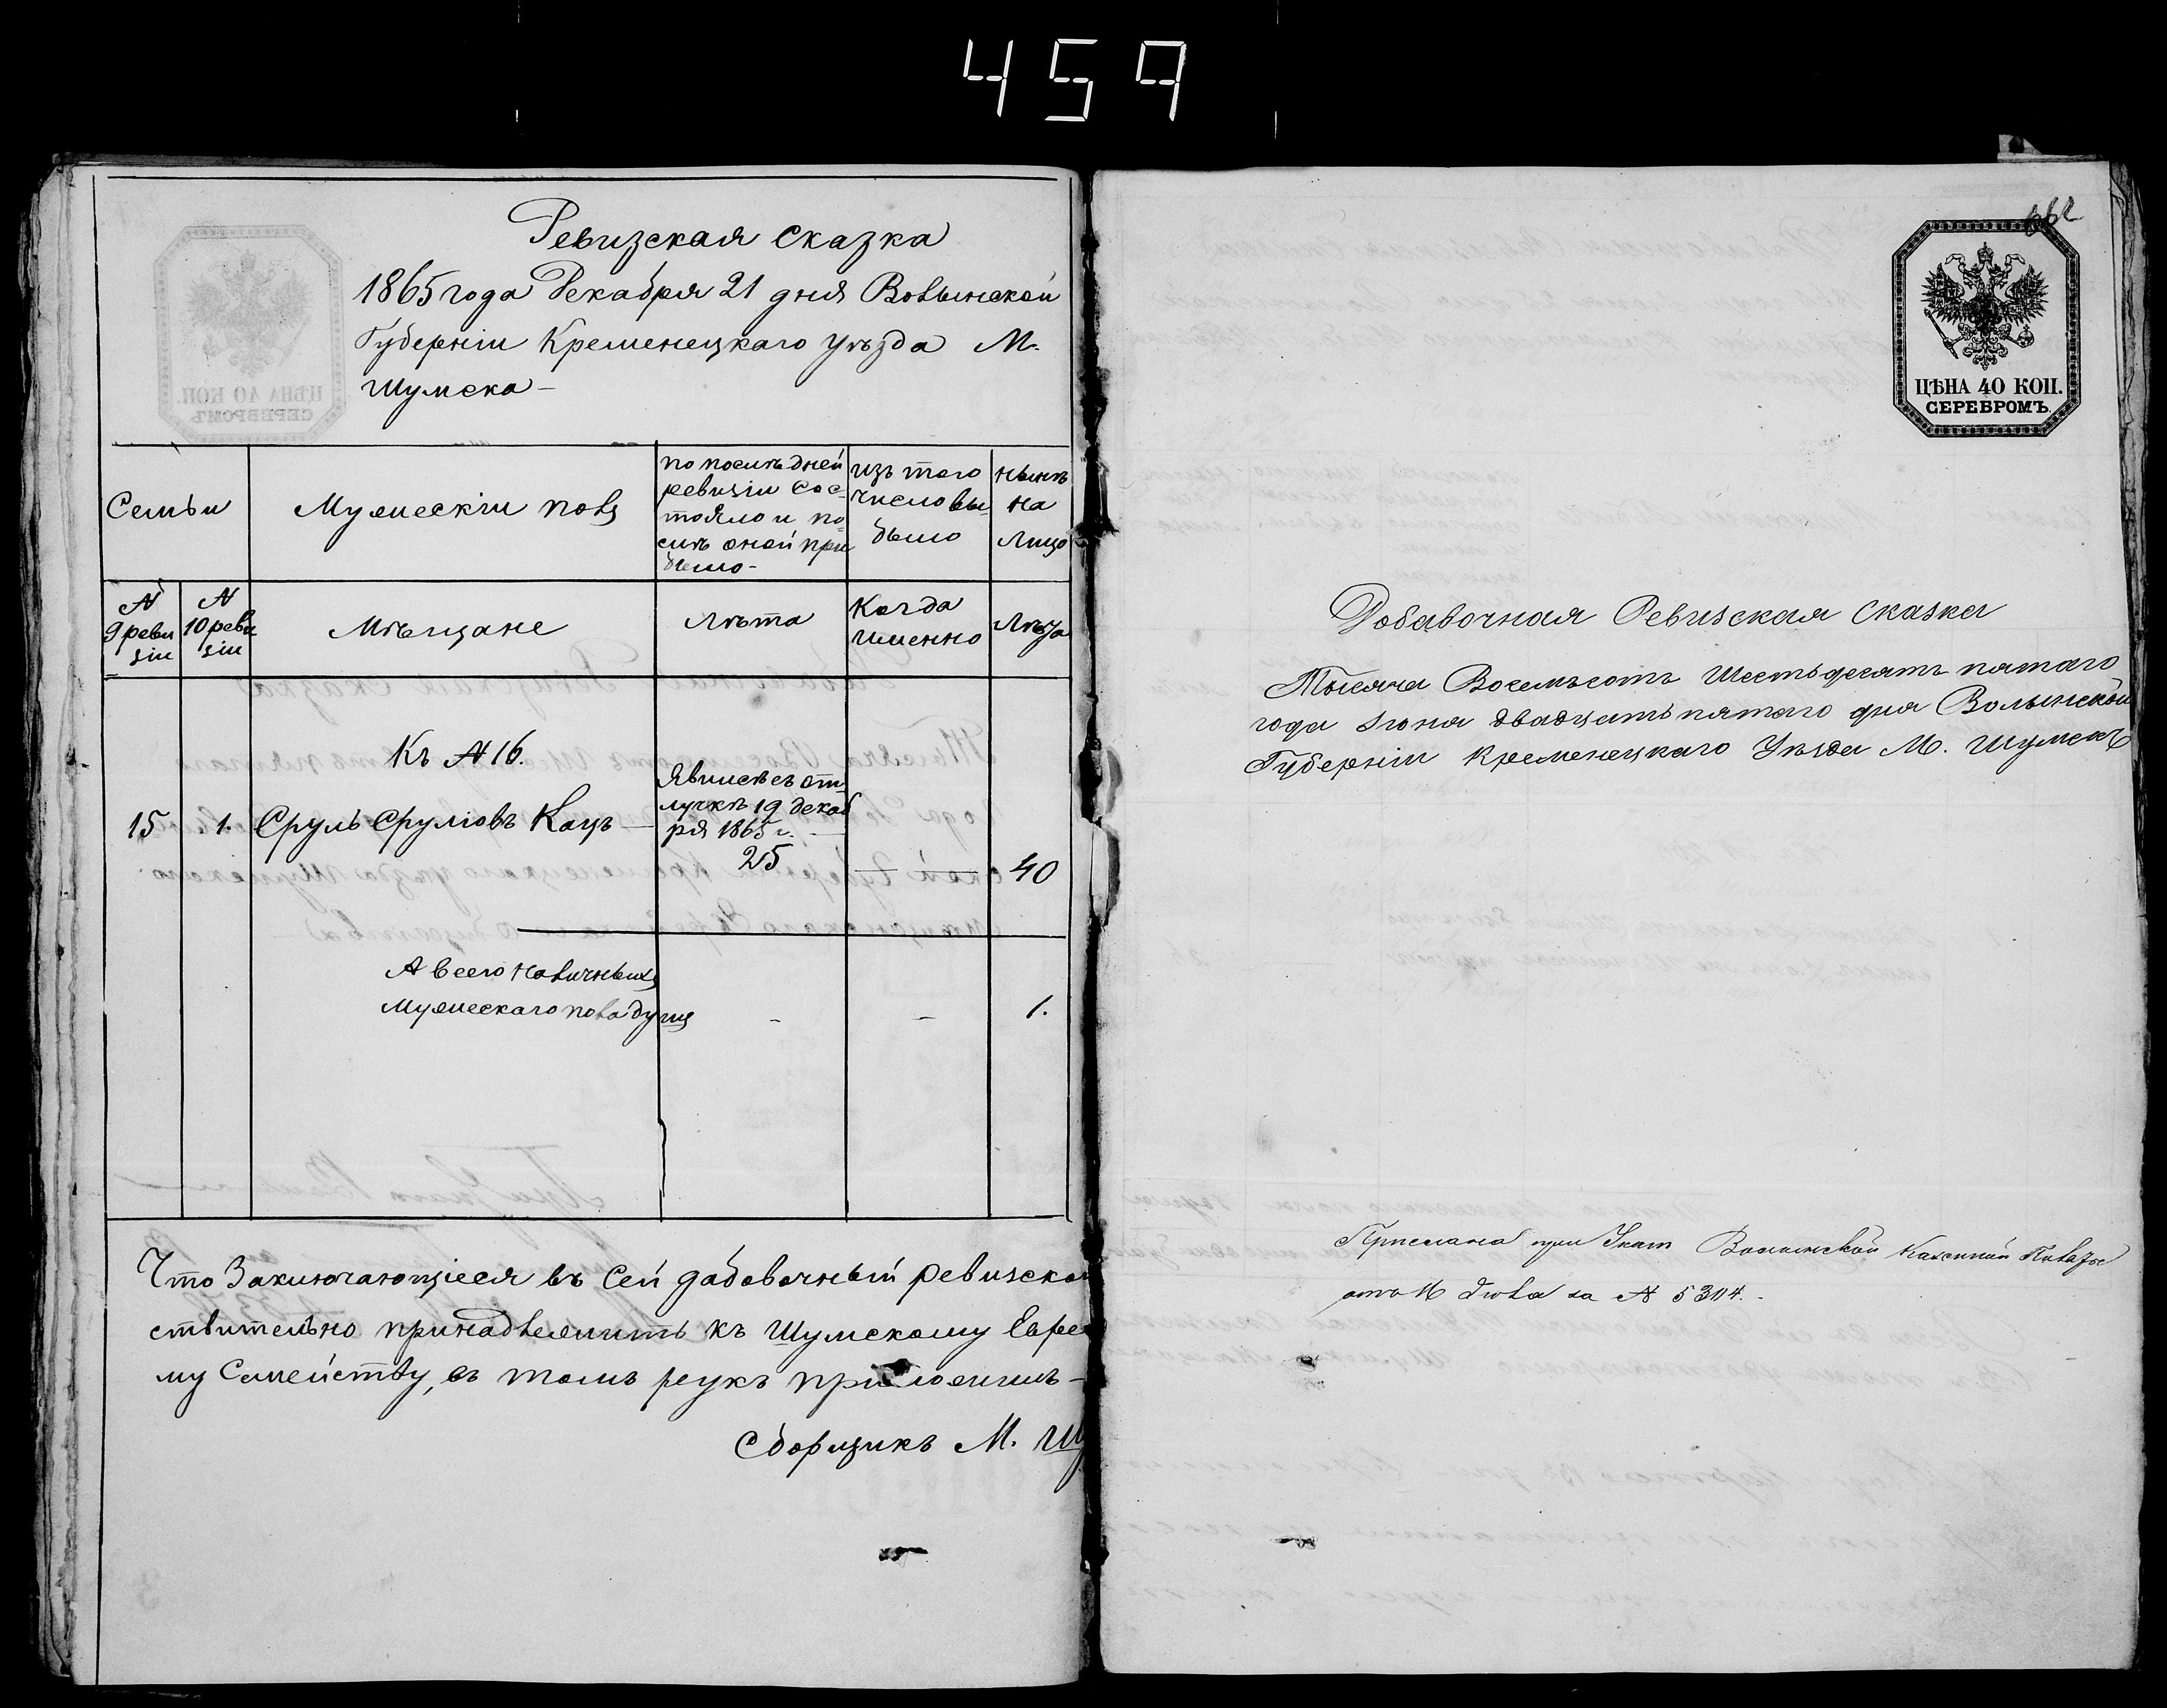 459
Ревизская сказка
1865 года Декабря 21 дня Волынской
Губерніи Кременецкаго уѣзда М.
Шумска –
Семьи
Мужескій полъ
по послѣдней
ревизіи сос-
тояло и по-
слѣ оной при
было –
изъ того
числа вы-
было
нынѣ
на
лицо
№
9 реви
зіи
№
10 реви
зіи
Мѣщане
Лѣта
Когда
именно
Лѣта
Къ № 16.
15
1.
Сруль Сруліовъ Кацъ –
Явился съ от
лучкѣ 19 декаб
ря 1865 г. –
25
— —
40
А всего наличныхъ
Мужескаго пола душъ
–
–
1.
Что Заключающіеся въ сей дабовочный ревизско
ствительно принадлежитъ къ Шумскому Евре
му Семейству, въ томъ рукъ приложилъ –
Сборщикъ М. Шу
662
ЦѢНА 40 КОП.
СЕРЕБРОМЪ.
Добавочная Ревизская сказка
Тысяча Восемьсотъ Шестьдесятъ пятаго
года Іюня двадцать пятаго дня Волынской
Губерніи Кременецкаго Уѣзда М. Шумскъ
Прислана при Указѣ Волынской Казенной Палаты
отъ 16 Іюля за № 5314.